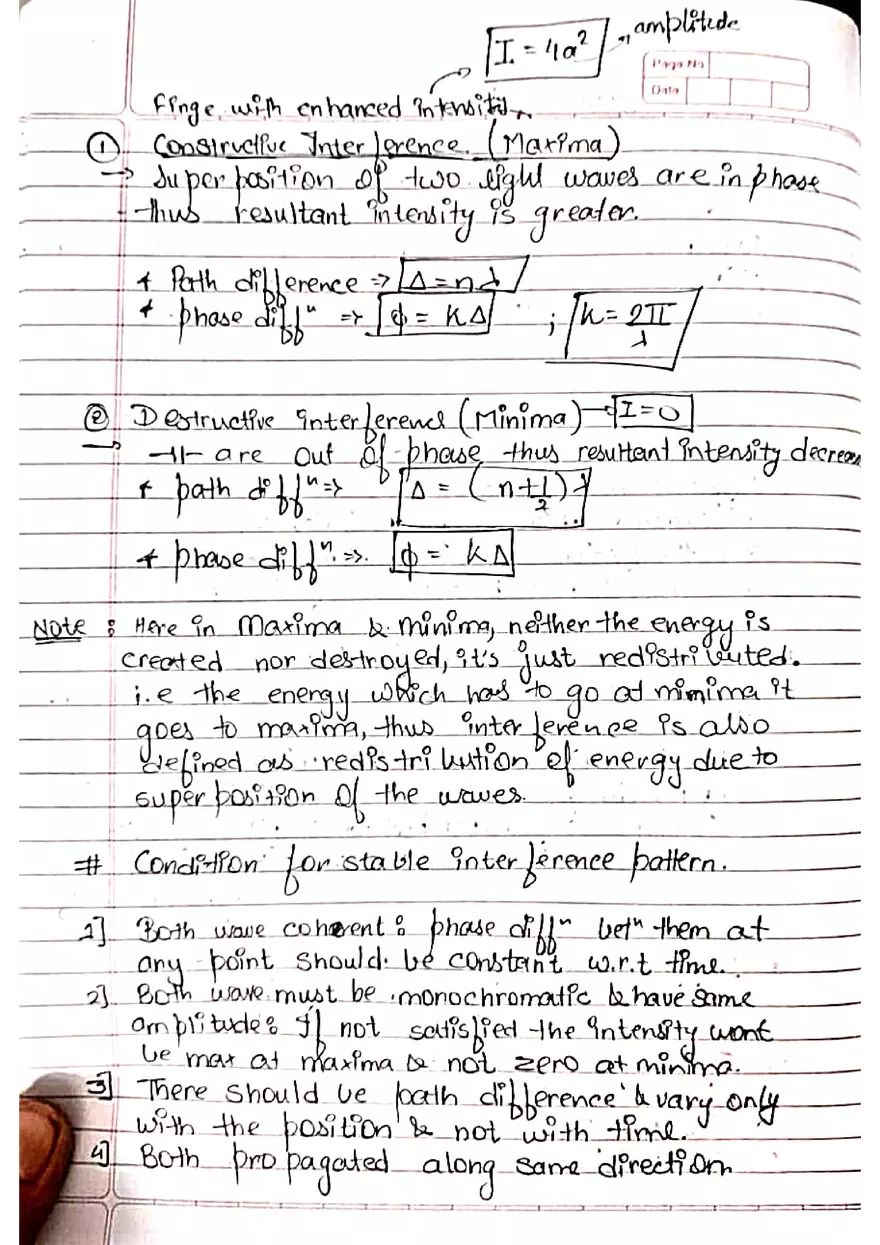 I = 4a² → amplitude
Page No
Date
Finge with enhanced intensity
① Constructive Interference. (Maxima)
→ Superposition of two light waves are in phase
thus resultant intensity is greater.
* Path difference => Δ = nλ
* phase diffⁿ => ϕ = KΔ ; k = 2π/λ
② Destructive interference (Minima) → I = 0
→ -11- are out of phase thus resultant intensity decreas
* path diffⁿ => Δ = (n+1/2)λ
* phase diffⁿ. =>. ϕ = kΔ
Note : Here in Maxima & minima, neither the energy is
created nor destroyed, it's just redistributed.
i.e the energy which has to go at minima it
goes to maxima, thus interference is also
defined as redistribution of energy due to
superposition of the waves.
# Condition for stable interference pattern.
1] Both wave coherent : phase diffⁿ betⁿ them at
any point should be constant w.r.t time.
2] Both wave must be monochromatic & have same
amplitude : If not satisfied the intensity wont
be max at maxima & not zero at minima.
3] There should be path difference & vary only
with the position & not with time.
4] Both propagated along same direction